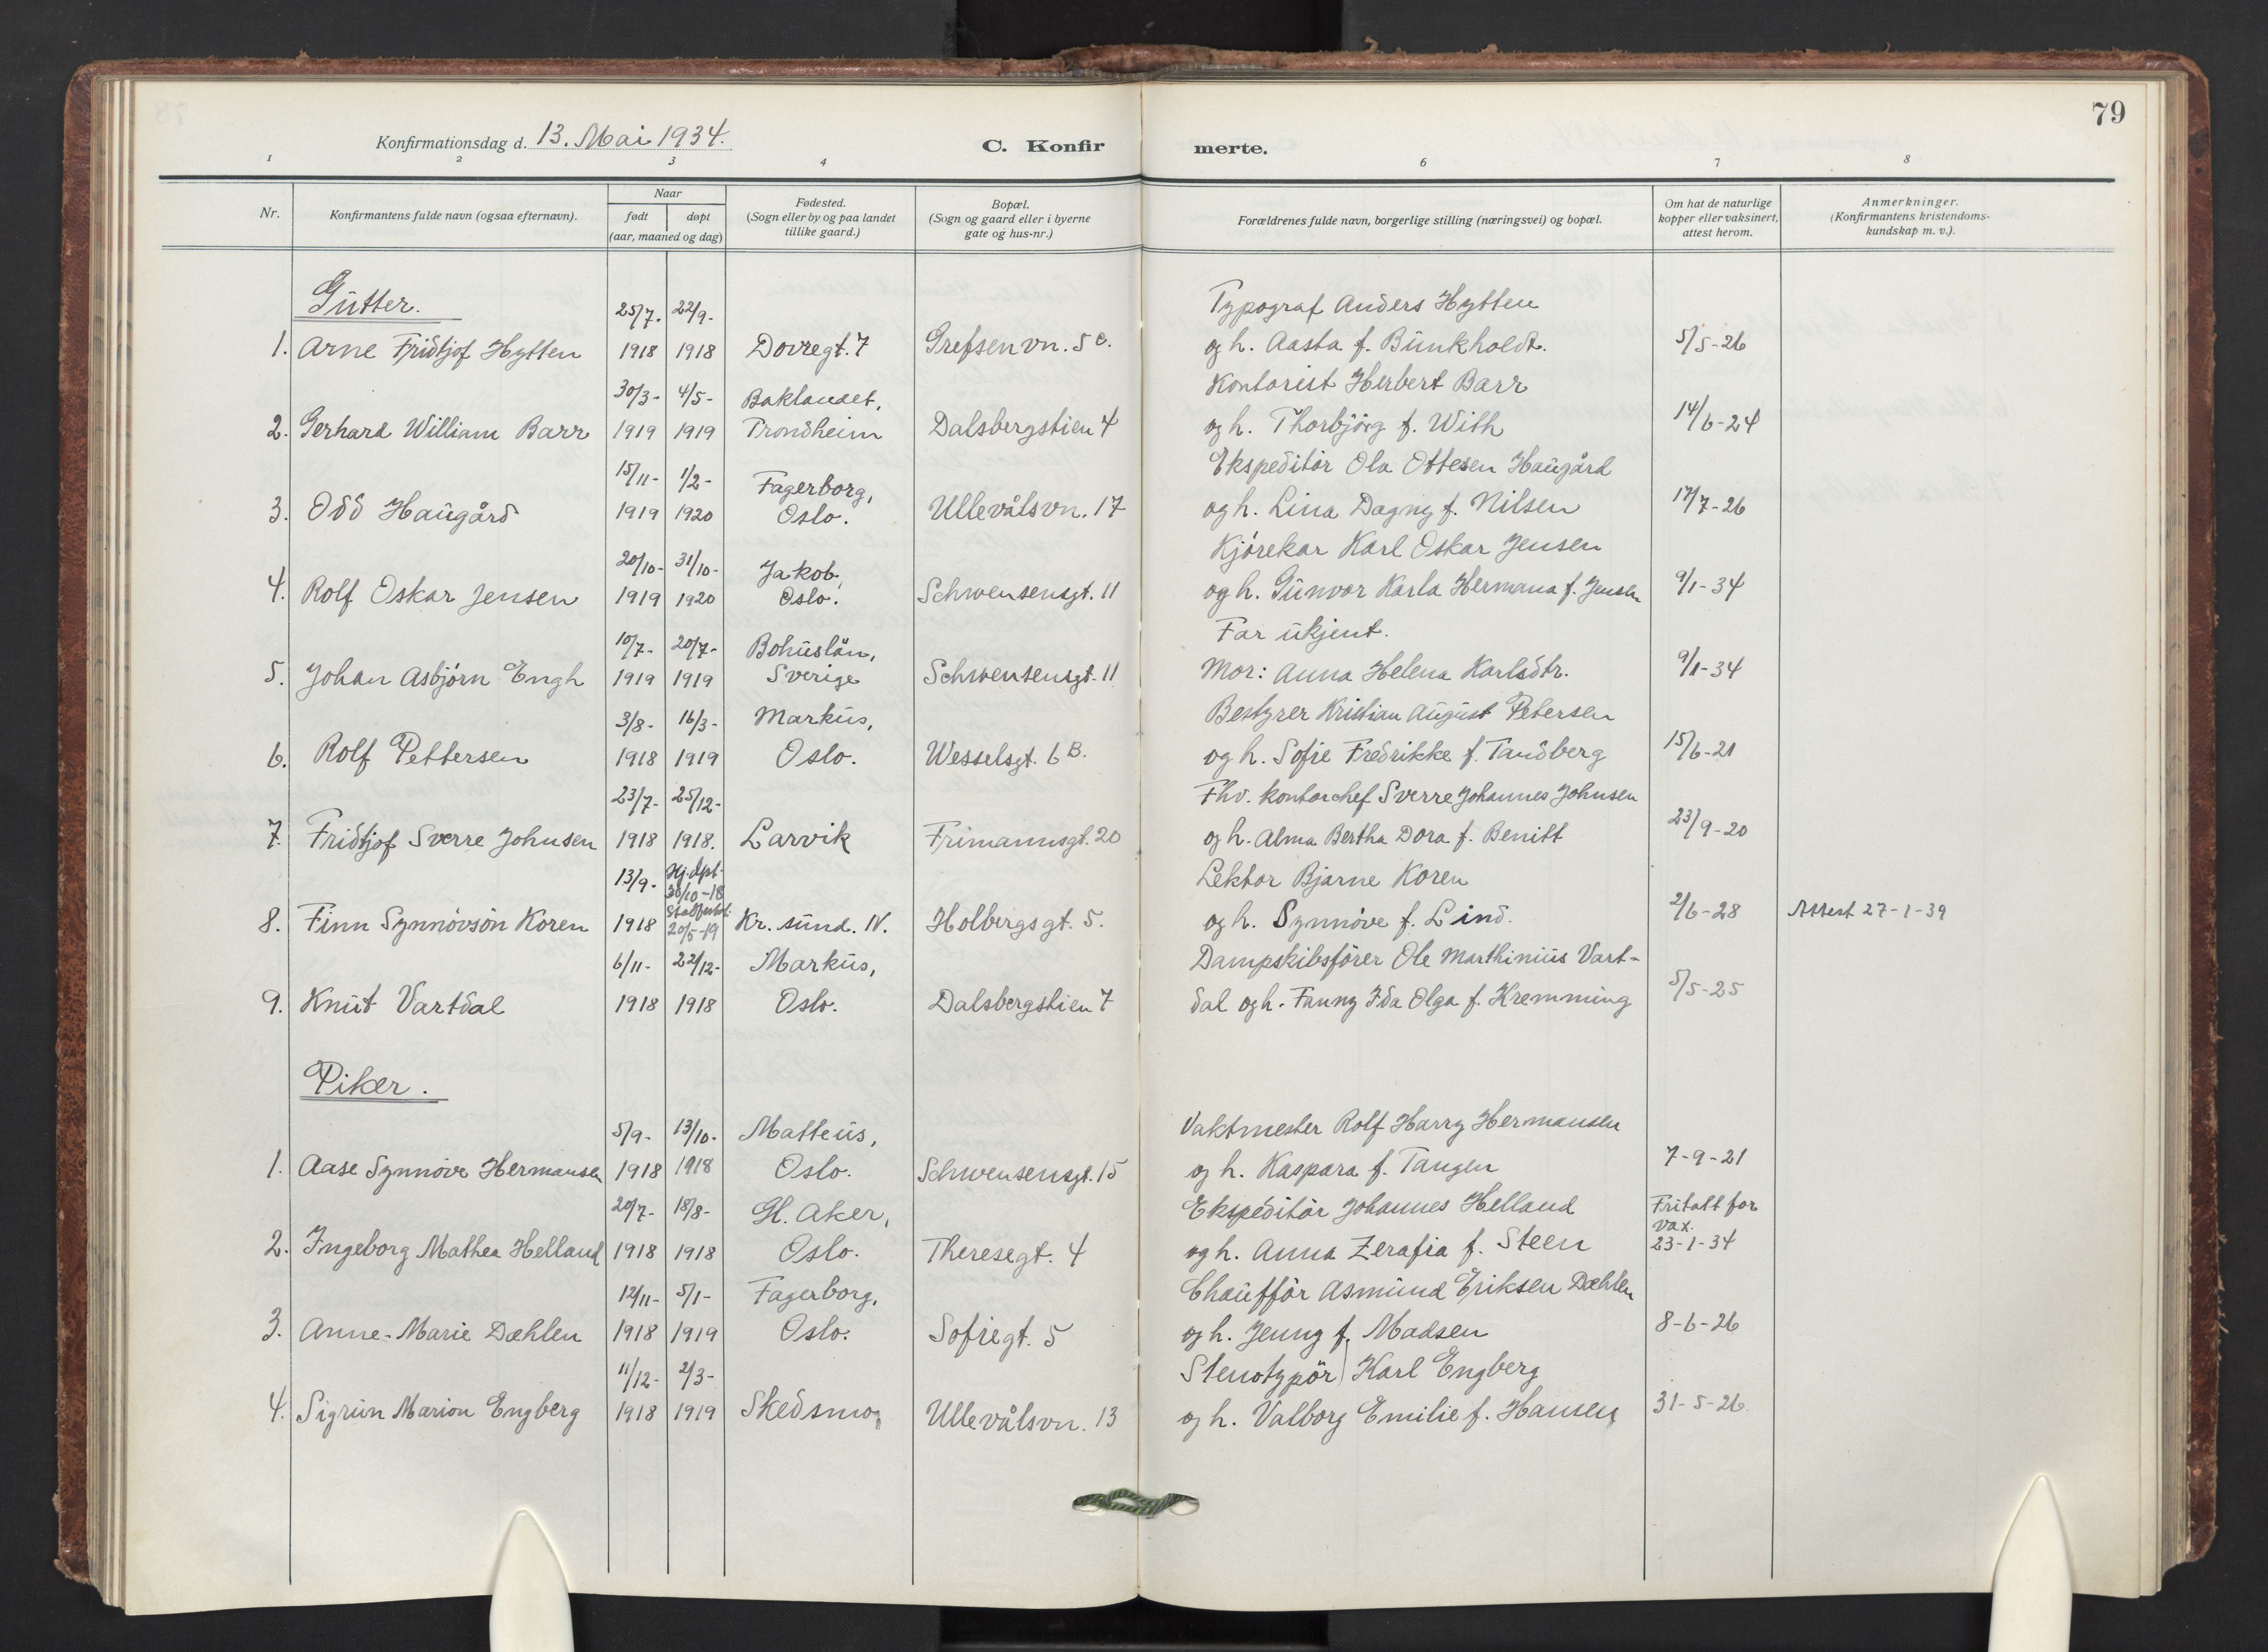 79
Konfirmationsdag d. 13. Mai 1934. C. Konfirmerte.
1 2 3 4 6 7 8
Nr. Konfirmantens fulde navn (ogsaa efternavn). Naar født døpt (aar, maaned og dag) Fødested. (Sogn eller by og paa landet tillike gaard.) Bopæl. (Sogn og gaard eller i byerne gate og hus-nr.) Forældrenes fulde navn, borgerlige stilling (næringsvei) og bopæl. Om hat de naturlige kopper eller vaksinert, attest herom. Anmerkninger. (Konfirmantens kristendoms-kundskap m. v.).
Gutter.
25/7. 22/9- Typograf Anders Hytten
1. Arne Fridtjof Hytten 1918 1918 Dovregt. 7 Grefsenvn. 5 c. og h. Aasta f. Bunkholdt. 5/5-26
30/3- 4/5- Baklandet, Kontorist Herbert Barr
2. Gerhard William Barr 1919 1919 Trondheim Dalsbergstien 4 og h. Thorbjörg f. With 14/6-24
15/11- 1/2- Fagerborg, Ekspeditör Ola Ottesen Haugård
3. Odd Haugård 1919 1920 Oslo. Ullevålsvn. 17 og h. Lina Dagny f. Nilsen 17/7-26
20/10- 31/10- Jakob, Kjörekar Karl Oskar Jensen
4. Rolf Oskar Jensen 1919 1920 Oslo. Schwensensgt. 11 og h. Gunvor Karla Hermana f. Jensen 9/1-34
10/7- 20/7- Bohuslän, Far ukjent.
5. Johan Asbjörn Engh 1919 1919 Sverige Schwensensgt. 11 Mor: Anna Helena Karlsdtr. 9/1-34
3/8- 16/3- Markus, Bestyrer Kristian August Petersen
6. Rolf Pettersen 1918 1919 Oslo. Wesselsgt. 6 B. og h. Sofie Fredrikke f. Tandberg 15/6-21
23/7- 25/12- Fhv. kontorchef Sverre Johannes Johnsen
7. Fridtjof Sverre Johnsen 1918 1918. Larvik Frimannsgt. 20 og h. Alma Bertha Dora f. Benitt 23/9-20
13/9- Hj.dpt. 30/10-18 Lektor Bjarne Koren
8. Finn Synnövsön Koren 1918 20/5-19 Kr. sund. N. Holbergsgt. 5. og h. Synnöve f. Lind. 2/6-28 Attest 27-1-39
6/11- 22/12- Markus, Dampskibsförer Ole Marthinius Vart-
9. Knut Vartdal 1918 1918 Oslo. Dalsbergstien 7 dal og h. Fanny Ida Olga f. Kremming 5/5-25
Piker.
5/9- 13/10- Matteus, Vaktmester Rolf Harry Hermansen
1. Aase Synnöve Hermansen 1918 1918 Oslo. Schwensensgt. 15 og h. Kaspara f. Tangen 7-9-21
20/7- 18/8- Gl. Aker, Ekspeditör Johannes Helland Fritatt for vax.
2. Ingeborg Mathea Helland 1918 1918 Oslo. Theresegt. 4 og h. Anna Zerafia f. Steen 23-1-34
12/11- 5/1- Fagerborg, Chaufför Asmund Eriksen Dæhlen
3. Anne-Marie Dæhlen 1918 1919 Oslo. Sofiegt. 5 og h. Jenny f. Madsen 8-6-26
11/12- 2/3- Stenotypör Karl Engberg
4. Sigrun Marion Engberg 1918 1919 Skedsmo, Ullevålsvn. 13 og h. Valborg Emilie f. Hansen 31-5-26